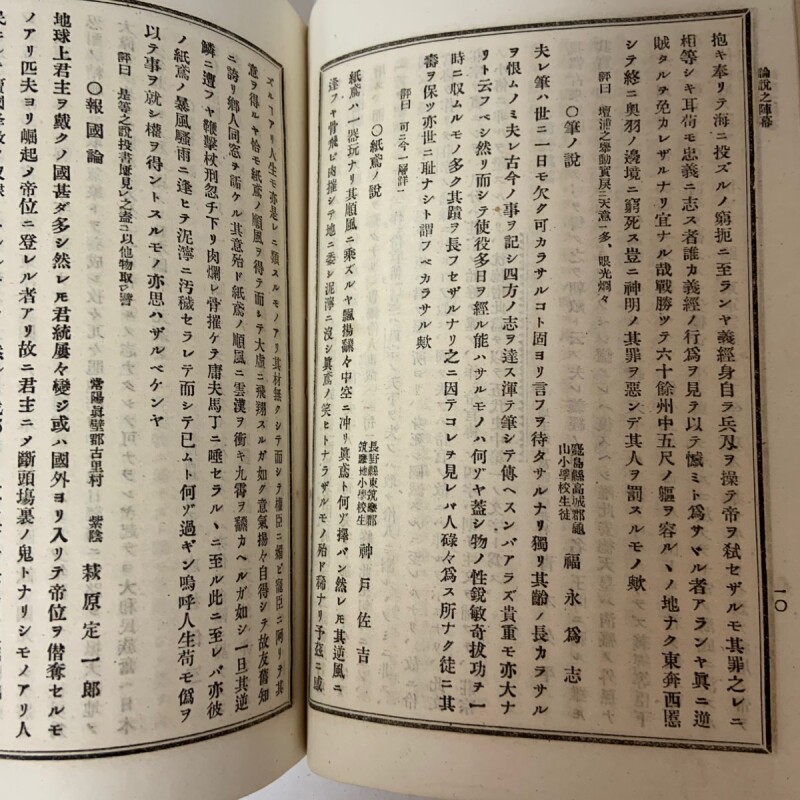 論說之陣幕
一〇
抱キ奉リテ海ニ投ズルノ窮扼ニ至ランヤ義經身自ラ兵刄ヲ操テ帝ヲ弑セザルモ其罪之レニ
相等シキ耳苟モ忠義ニ志ス者誰カ義經ノ行爲ヲ見テ以テ憾ミト爲サヾル者アランヤ眞ニ逆
賊タルヲ免カレザルナリ宜ナル哉戰勝ツテ六十餘州中五尺ノ軀ヲ容ルヽノ地ナク東奔西匿
シテ終ニ奧羽ノ邊境ニ窮死ス豈ニ神明ノ其罪ヲ惡ンデ其人ヲ罰スルモノ歟
評曰 壇浦之擧動實戾ニ天意一多、眼光爛々
〇筆ノ說
山小學校生徒 福永爲志
夫レ筆ハ世ニ一日モ欠ク可カラサルコト固ヨリ言フヲ待タサルナリ獨リ其齡ノ長カラサル
ヲ恨ムノミ夫レ古今ノ事ヲ記シ四方ノ志ヲ達ス渾テ筆シテ傳ヘスンバアラズ貴重モ亦大ナ
リト云フベシ然リ而シテ使役多日ヲ經ル能ハサルモノハ何ゾヤ蓋シ物ノ性銳敏奇拔功ヲ一
時ニ収ムルモノ多ク其蹟ヲ長フセザルナリ之ニ因テコレヲ見レバ人碌々爲ス所ナク徒ニ其
壽ヲ保ツ亦世ニ耻ナシト謂フベカラサル歟
評曰 可ニ今一層詳一
〇紙鳶ノ說
長野縣東筑摩郡
筑摩地小學校生 神戶佐吉
紙鳶ハ一器玩ナリ其順風ニ乘ズルヤ飄揚飜々中空ニ冲リ眞鳶ト何ゾ擇バン然レモ其逆風ニ
逢フヤ骨飛ビ肉摧シテ地ニ委シ泥濘ニ沒シ眞鳶ノ笑ヒトナラザルモノ殆ド稀ナリ予玆ニ感
ズルコアリ人生モ亦是レニ類スルモノアリ其材無クシテ而シテ權臣ニ媚ビ寵臣ニ阿リテ其
意ヲ得ルヤ恰モ紙鳶ノ順風ヲ得テ而シテ大虛ニ飛翔スルガ如ク意氣揚々自得シテ故友舊知
ニ誇リ鄕人同窓ヲ
其意殆ド紙鳶ノ順風ニ雲漢ヲ衝キ九霄ヲ飜カヘルガ如シ一旦其逆
鱗ニ遭フヤ鞭擊杖刑忽チ下リ肉爛レ骨摧ケテ庸夫馬丁ニ唾セラルヽニ至ル此ニ至レバ亦彼
ノ紙鳶ノ暴風騷雨ニ逢ヒテ泥濘ニ汚穢セラレテ而シテ已ムト何ゾ過ギン嗚呼人生苟モ僞ヲ
以テ事ヲ就シ權ヲ得ントスルモノ亦思ハザルベケンヤ
評曰 是等之說投書屢見レ之盍ニ以他物取一譬
〇報國論
常陽眞壁郡古里村 紫陰 萩原定一郎
地球上君主ヲ戴クノ國甚ダ多シ然レモ君統屢々變ジ或ハ國外ヨリ入リテ帝位ヲ僣奪セルモ
ノアリ匹夫ヨリ崛起ノ帝位ニ登レル者アリ故ニ君主ニノ斷頭塲裏ノ鬼トナリシモノアリ人